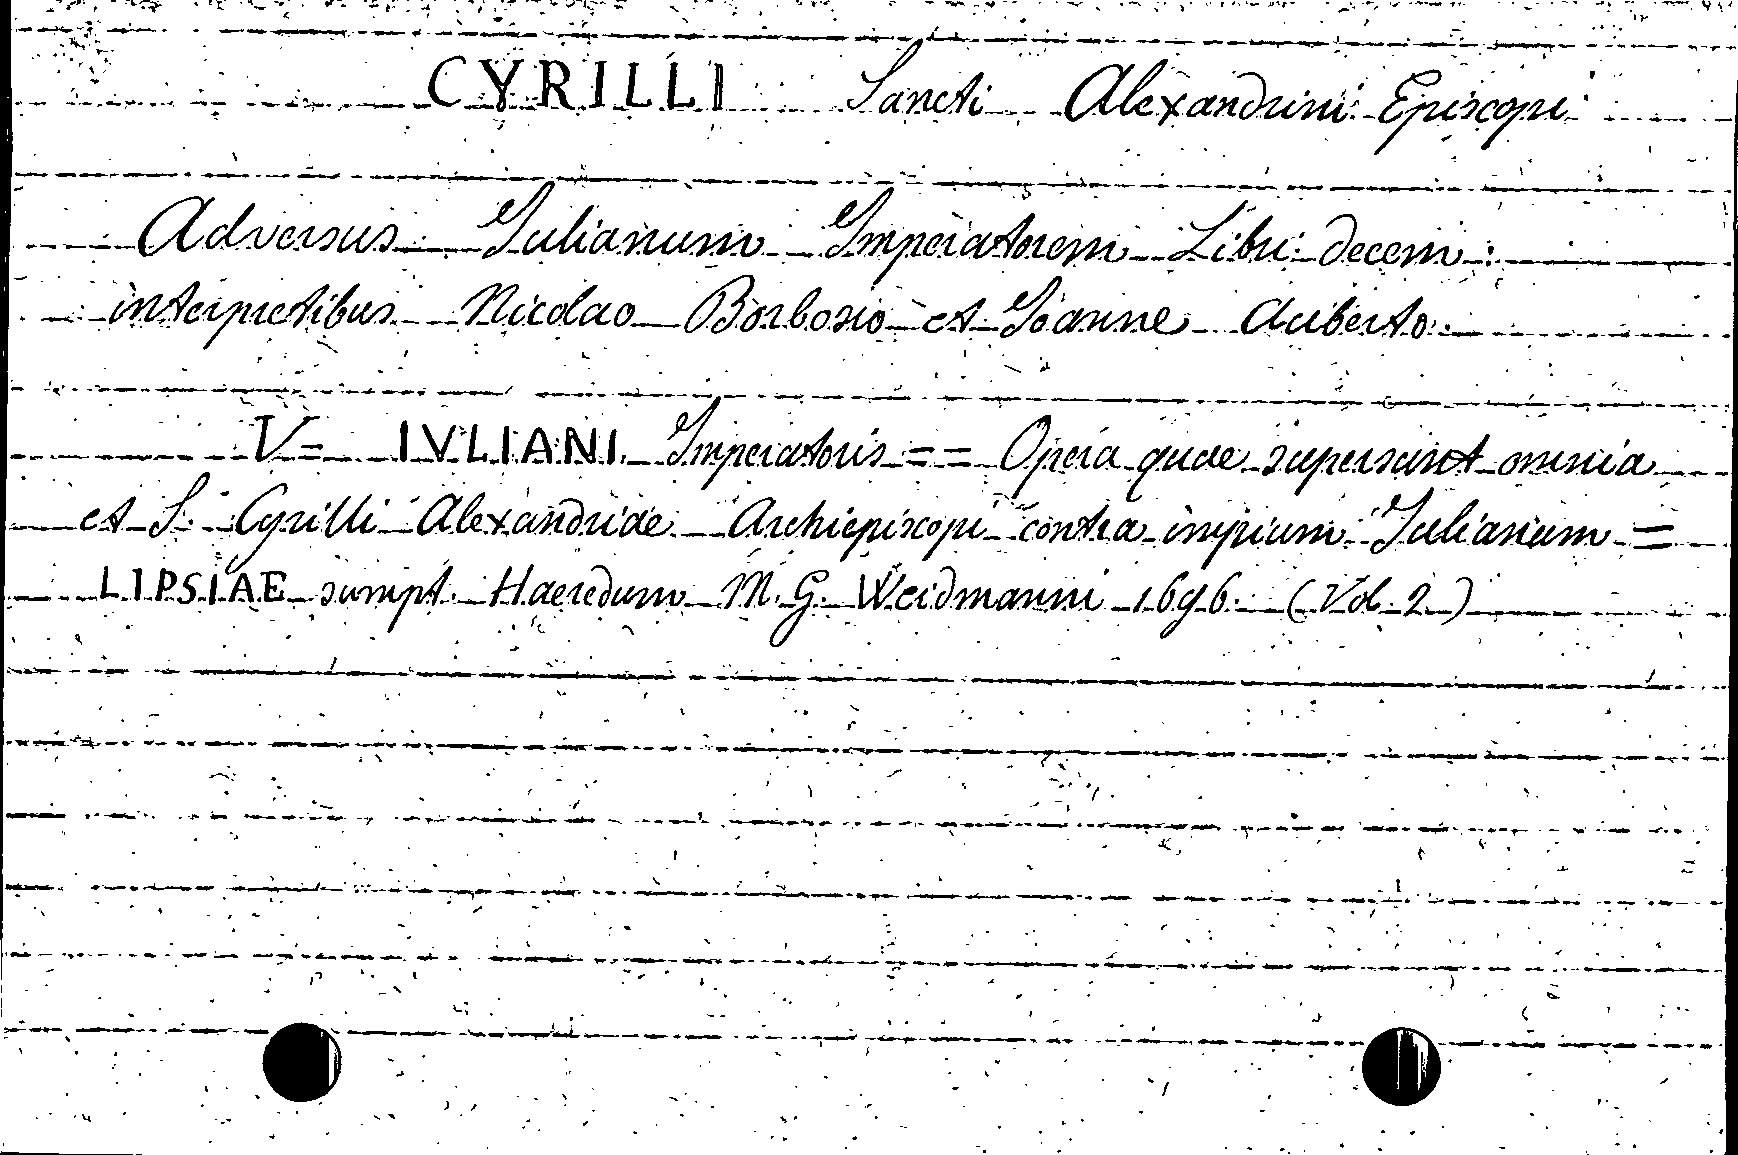 CYRILLI Sancti Alexandrini Episcopi
Adversus Iulianum Imperatorem Libri decem:
interpretibus Nicolao Borbonio et Ioanne Auberto.
V= IVLIANI Imperatoris == Opera quae supersunt omnia
et S. Cyrilli Alexandriae Archiepiscopi contra impium Iulianum =
LIPSIAE sumpt. Haeredum M. G. Weidmanni 1696. (Vol. 2)